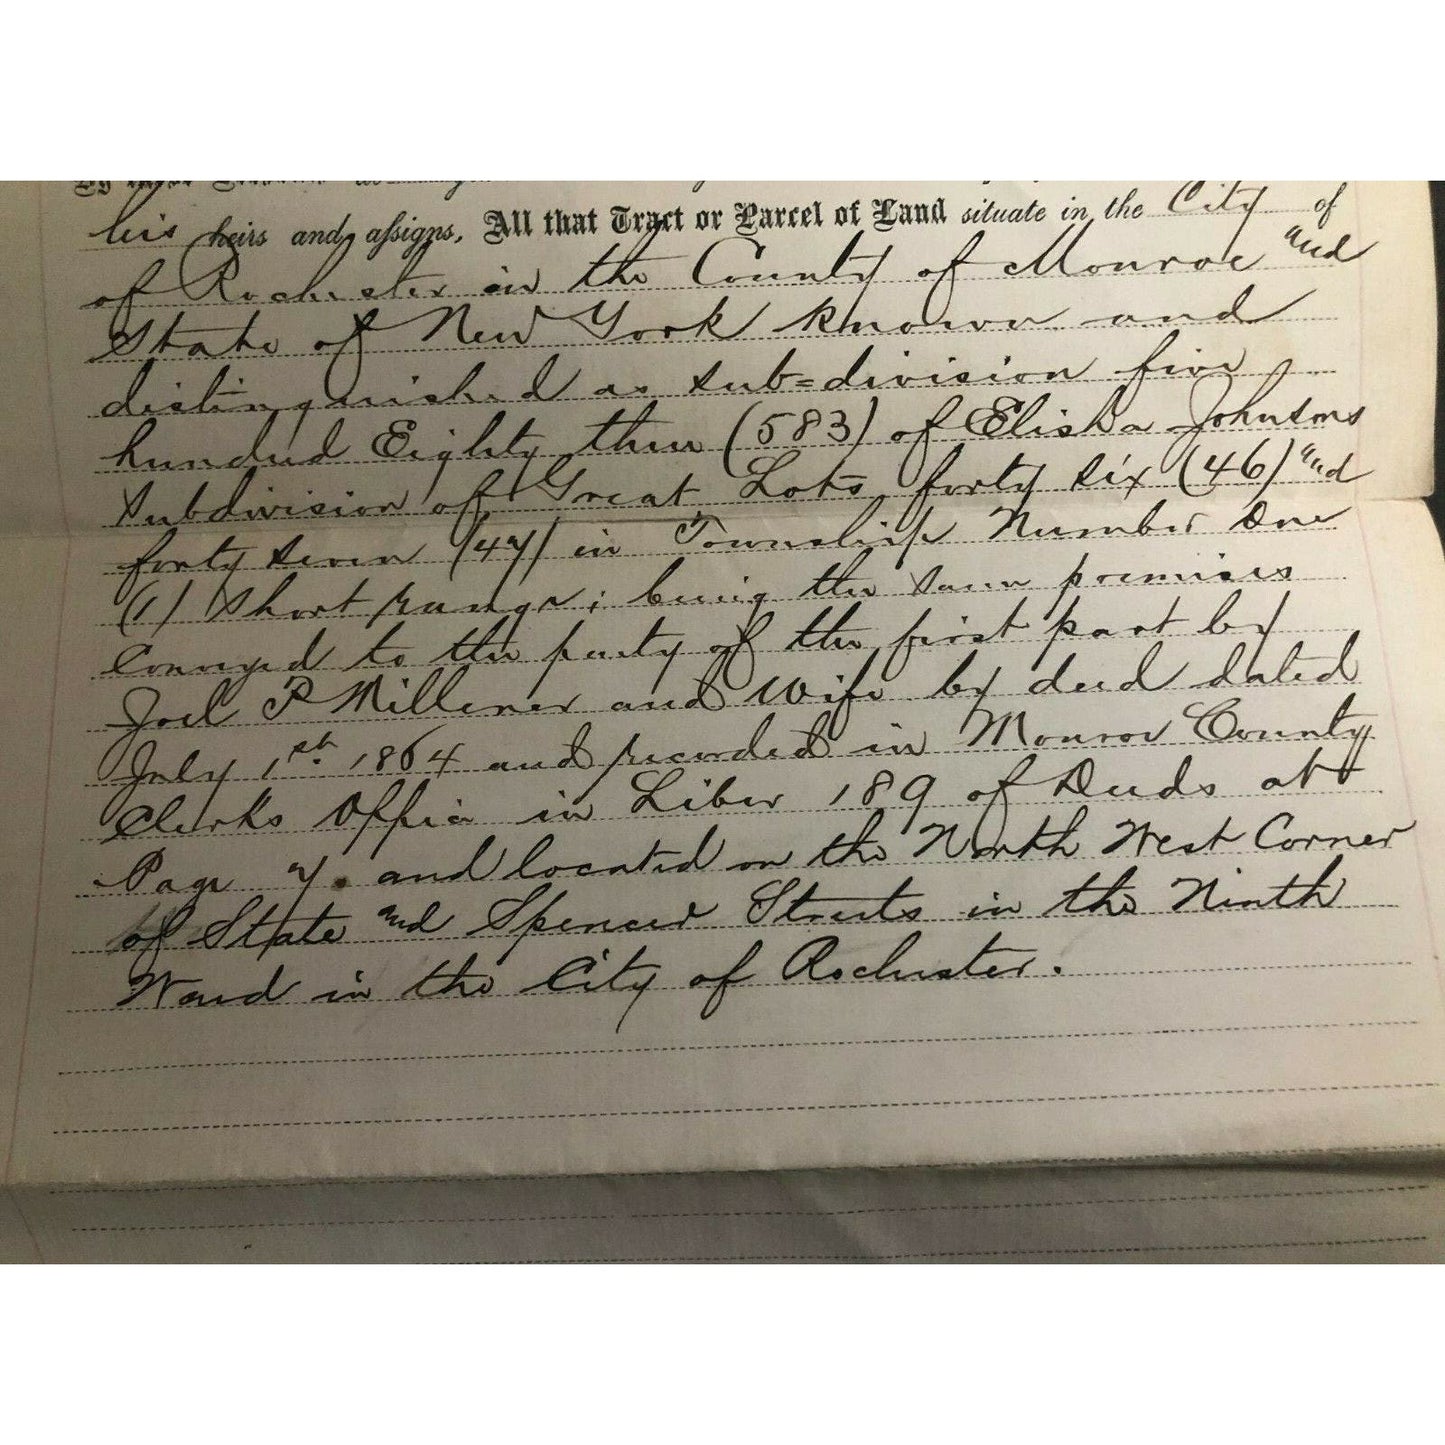 his heirs and assigns, All that Tract or Parcel of Land situate in the City of
of Rochester in the County of Monroe and
State of New York known and
distinguished as sub=division five
hundred Eighty three (583) of Elisha Johnsons
Subdivision of Great Lots forty six (46) and
forty seven (47) in Township Number One
(1) Short range; being the same premises
Conveyed to the party of the first part by
Joel P Millener and Wife by deed dated
July 1st. 1864 and recorded in Monroe County
Clerks Office in Liber 189 of Deeds at
Page 7. and located on the North West Corner
of State and Spencer Streets in the Ninth
Ward in the City of Rochester.